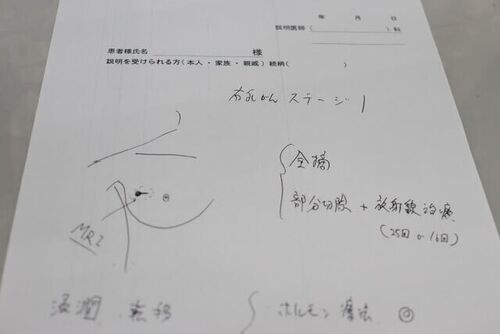 年 月 日
説明医師( )科
患者様氏名 様
説明を受けられる方(本人・家族・親戚)続柄( )
右乳がん ステージ1
全摘
部分切除 + 放射線治療
(25回 or 16回)
MRI
浸潤 転移
ホルモン療法 ◎